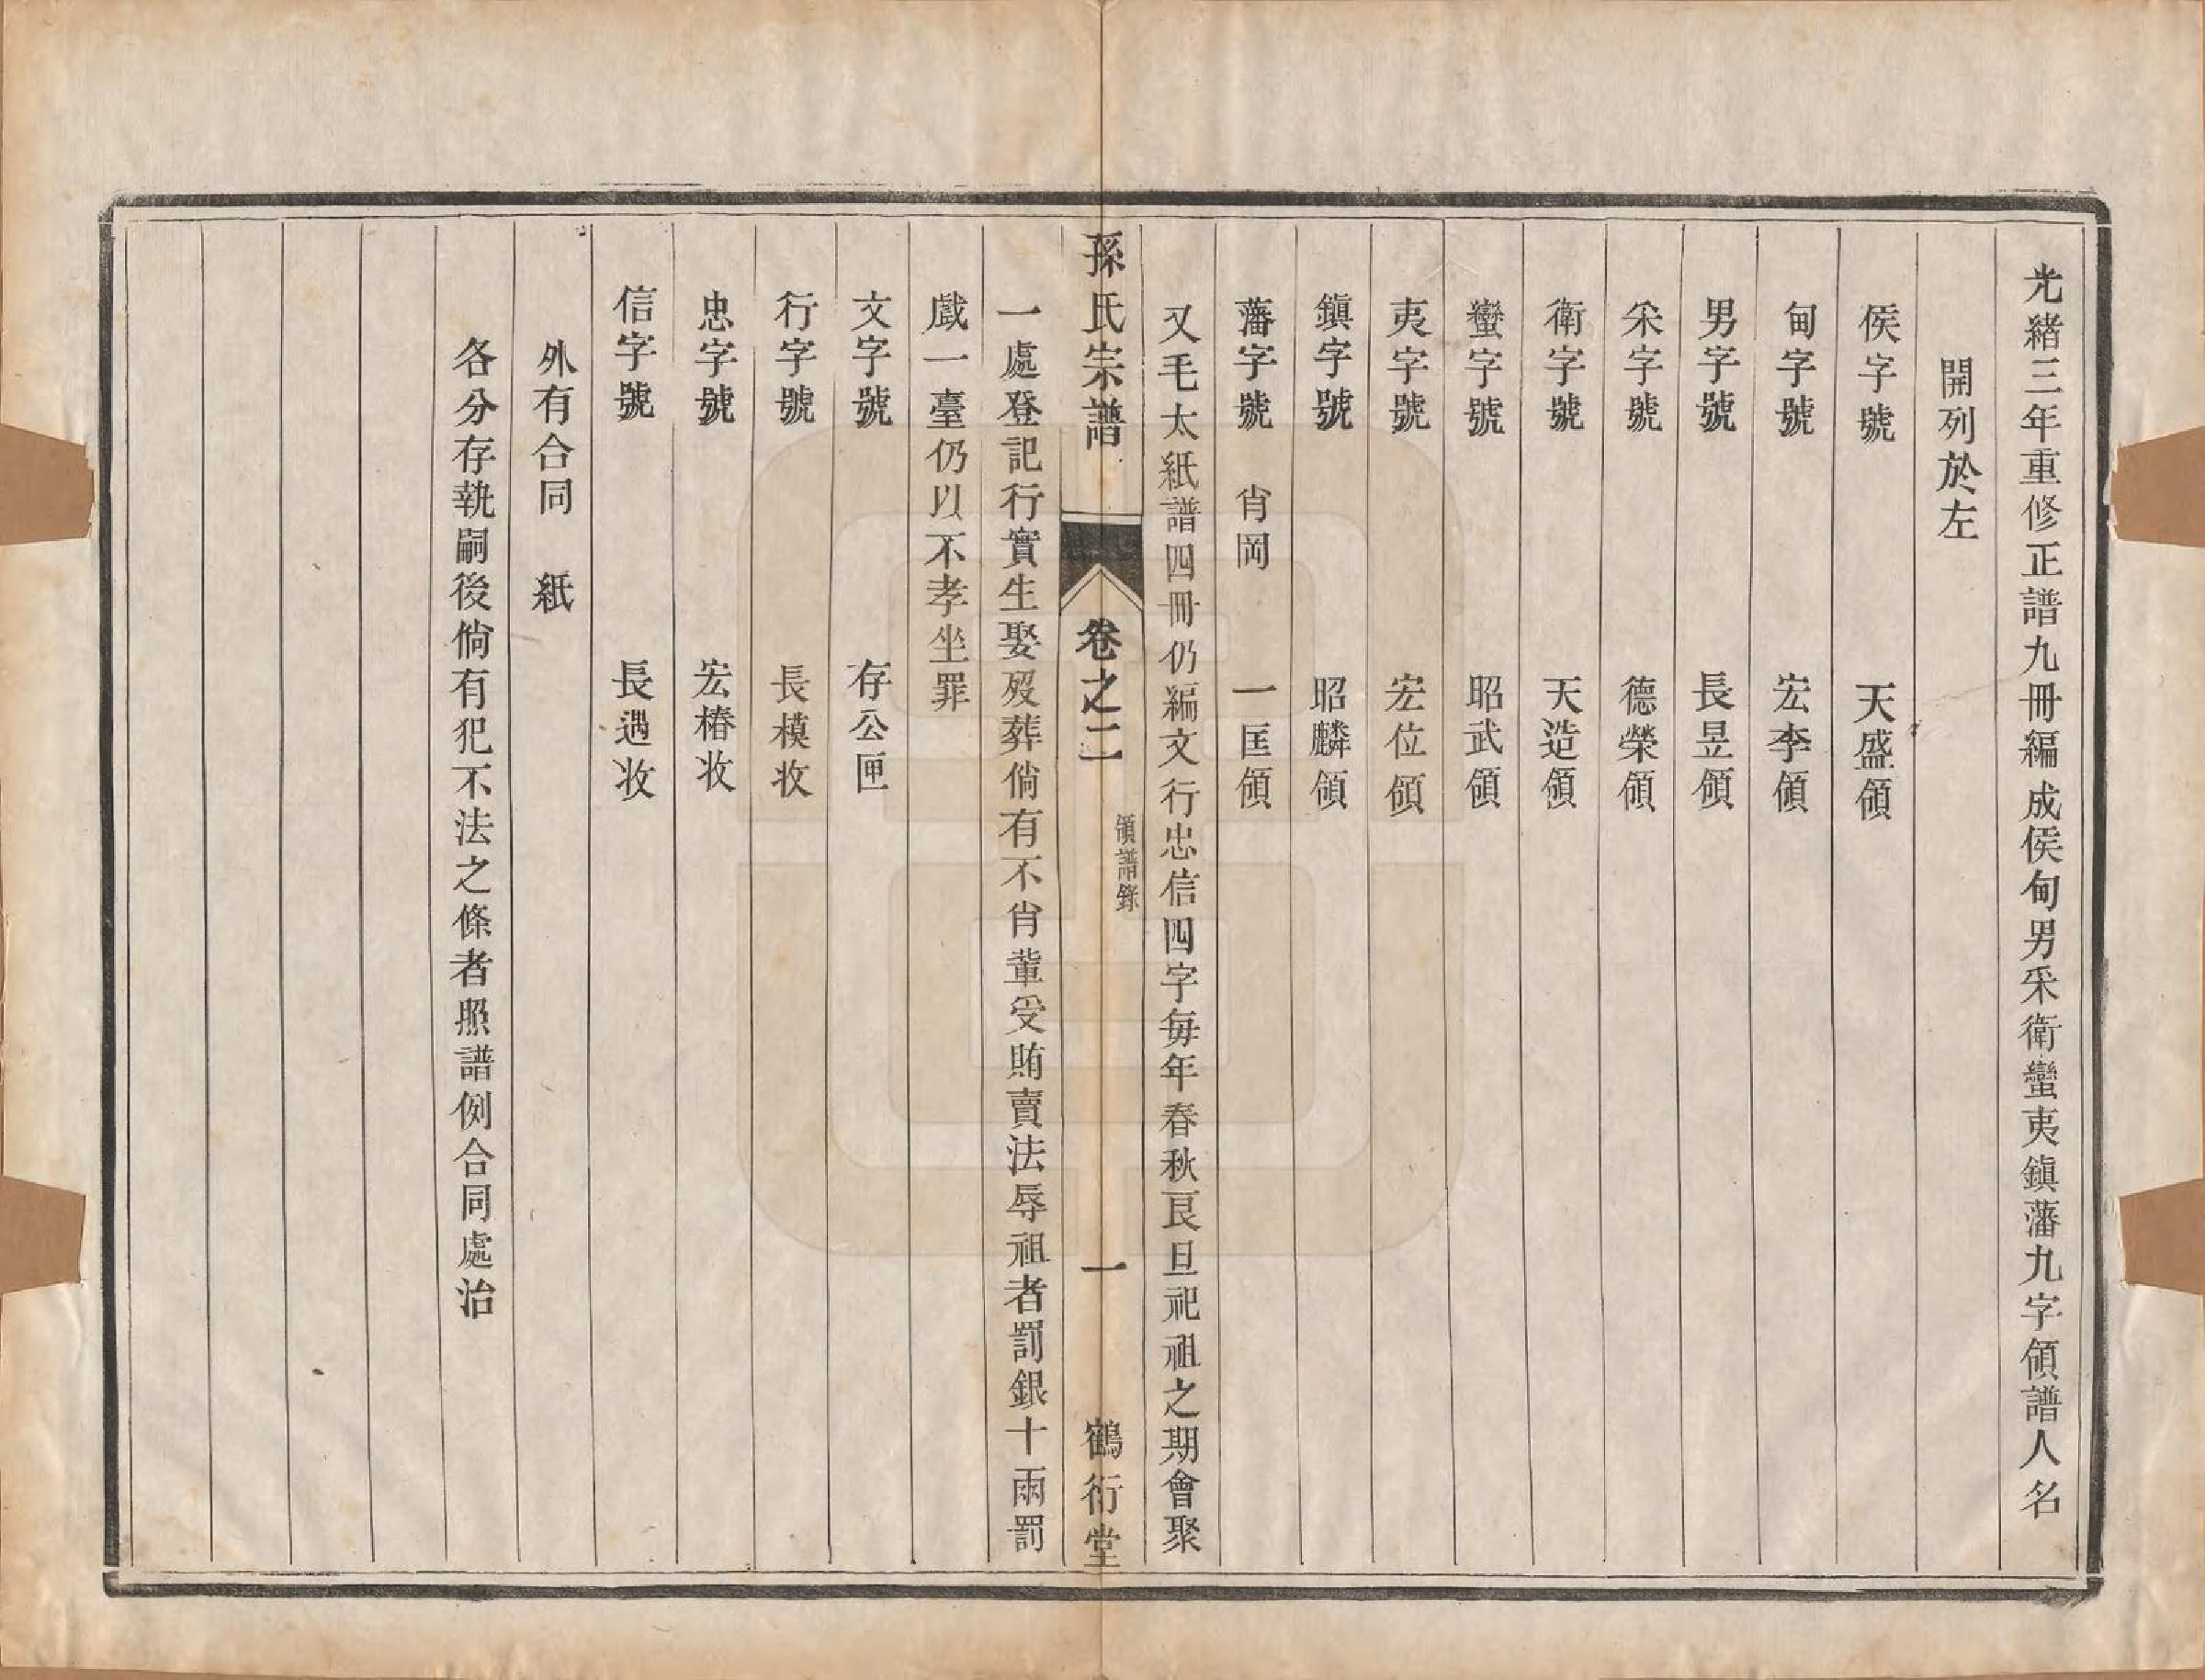 光緒三年重修正譜九冊編成侯甸男采衛蠻夷鎭藩九字領譜人名
開列於左
侯字號 天盛領
甸字號 宏李領
男字號 長昱領
采字號 德榮領
衛字號 天造領
蠻字號 昭武領
夷字號 宏位領
鎭字號 昭麟領
藩字號 肖岡 一匡領
又毛太紙譜四冊仍編文行忠信四字每年春秋艮旦祀祖之期會聚
孫氏宗譜 卷之二 領譜錄 一 鶴衍堂
一處登記行實生娶歿葬倘有不肖輩受賄賣法辱祖者罰銀十兩罰
戲一臺仍以不孝坐罪
文字號 存公匣
行字號 長模收
忠字號 宏椿收
信字號 長遇收
外有合同 紙
各分存執嗣後倘有犯不法之條者照譜例合同處治